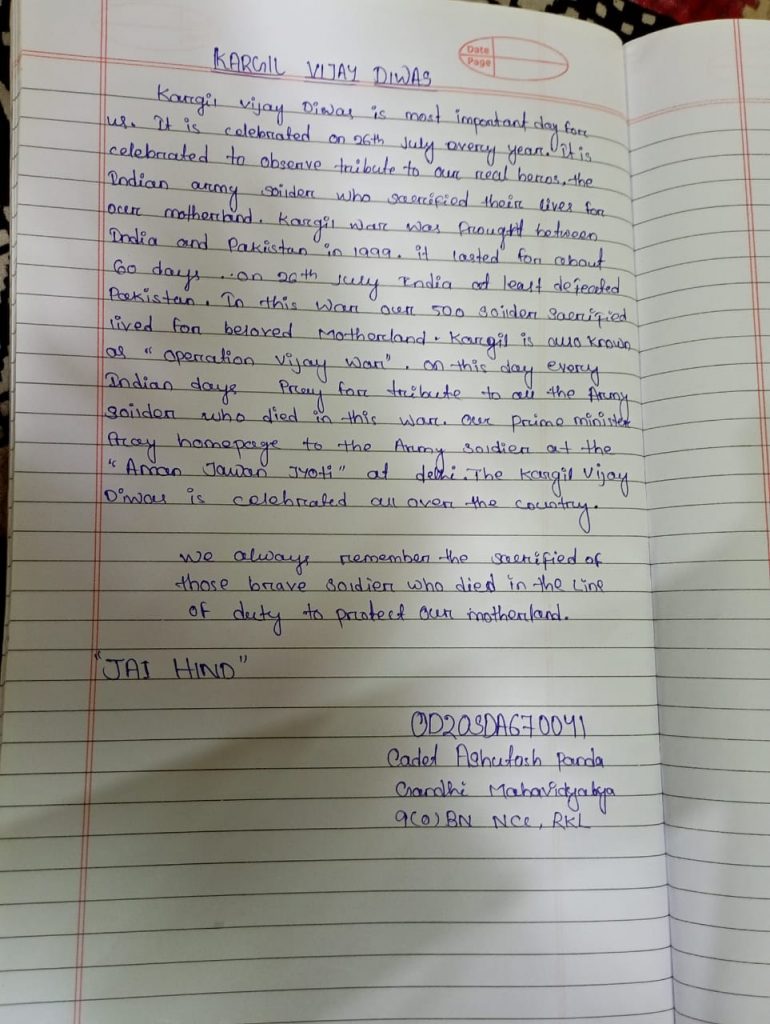 Date
Page
KARGIL VIJAY DIWAS
Kargil vijay Diwas is most important day for
us. It is celebrated on 26th July every year. It is
celebrated to observe tribute to our real heros, the
Indian army soilder who sacrified their lives for
our motherland. Kargil war was frought between
India and Pakistan in 1999. it lasted for about
60 days. on 26th July India at least defeated
Pakistan. In this war our 500 soilder sacrified
lived for beloved Motherland. Kargil is also known
as "operation vijay war". on this day every
Indian days Pray for tribute to all the Army
soilder who died in this war. our prime minister
Pray homepage to the Army soldier at the
"Aman Jawan Jyoti" at delhi. The Kargil Vijay
Diwas is celebrated all over the country.
we always remember the sacrified of
those brave soldier who died in the line
of duty to protect our motherland.
"JAI HIND"
OD20SDA670041
Cadet Ashutosh Panda
Gandhi Mahavidyalya
9(O) BN NCC, RKL